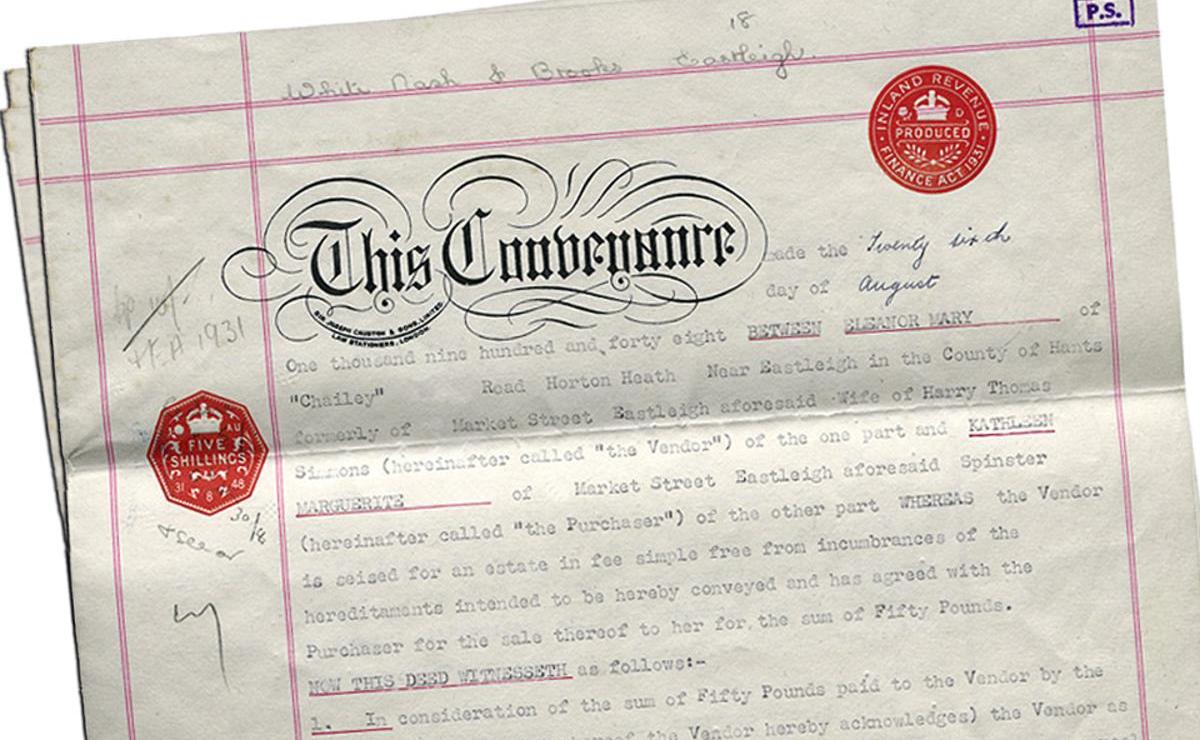 18
P.S.
White Nash & Brooks Eastleigh.
INLAND REVENUE
PRODUCED
FINANCE ACT 1931
This Conveyance made the Twenty sixth
day of August
SIR JOSEPH CAUSTON & SONS, LIMITED.
LAW STATIONERS, LONDON.
One thousand nine hundred and forty eight BETWEEN ELEANOR MARY of
"Chailey" Road Horton Heath Near Eastleigh in the County of Hants
formerly of Market Street Eastleigh aforesaid Wife of Harry Thomas
Simmons (hereinafter called "the Vendor") of the one part and KATHLEEN
MARGUERITE of Market Street Eastleigh aforesaid Spinster
(hereinafter called "the Purchaser") of the other part WHEREAS the Vendor
is seised for an estate in fee simple free from incumbrances of the
hereditaments intended to be hereby conveyed and has agreed with the
Purchaser for the sale thereof to her for the sum of Fifty Pounds.
NOW THIS DEED WITNESSETH as follows:-
1. In consideration of the sum of Fifty Pounds paid to the Vendor by the
the Vendor hereby acknowledges) the Vendor as
1931
AU
FIVE
SHILLINGS
31 8 48
30/8